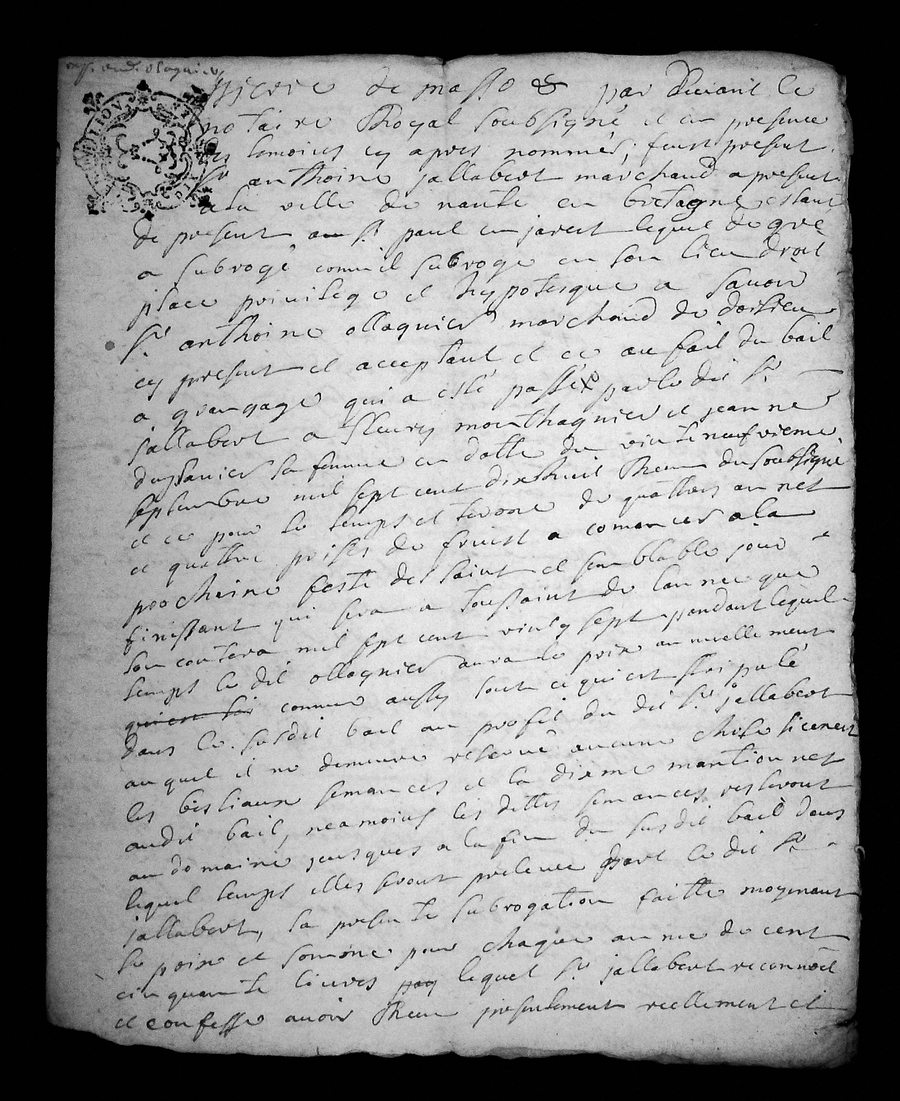 pierre de masso & par devant le
notaire Royal soubsigné et en presence
des temoins cy apres nommés, feust present
sr anthoine jallabert marchand a present
a la ville de nante en bretagne estant
de present au st paul en jarest lequel de gré
a subrogé comme il subroge en son lieu droit
place privilege et hypotesque a savoir
sr anthoine ollagnier marchand de doisieu
cy present et acceptant et ce au fait du bail
a grangage qui a esté passé par le dit sr
jallabert a fleury monthagnier et jeanne
sa femme en datte du vintneufvieme
septembre mil sept cent dixhuit Receu du soubsigné
et ce pour le temps et terme de quattres année
et quattre prises de fruist a comancer a la
procheine feste de saint et semblable jour
finissant qui sera a toussaint de lannee que
lon contera mil sept cent vingt sept pandant lequel
temps le dit ollagnier aura le prix annuellement
comme aussy tout ce qui est stipulé
dans le susdit bail au profit du dit sr jallabert
auquel il ne demeure reservé aucune chose
les bestiaux semances et la dixme mantionnet
audit bail, neamoins les dittes semances resteront
au domaine jusques a la fin du susdit bail dans
lequel temps elles seront preleve par le dit sr
jallabert, la presente subrogation faitte moyenant
le prix et somme pour chaque annee de cent
cinquante livres lequel sr jallabert reconnoit
et confesse avoir Receu presentement reellement et